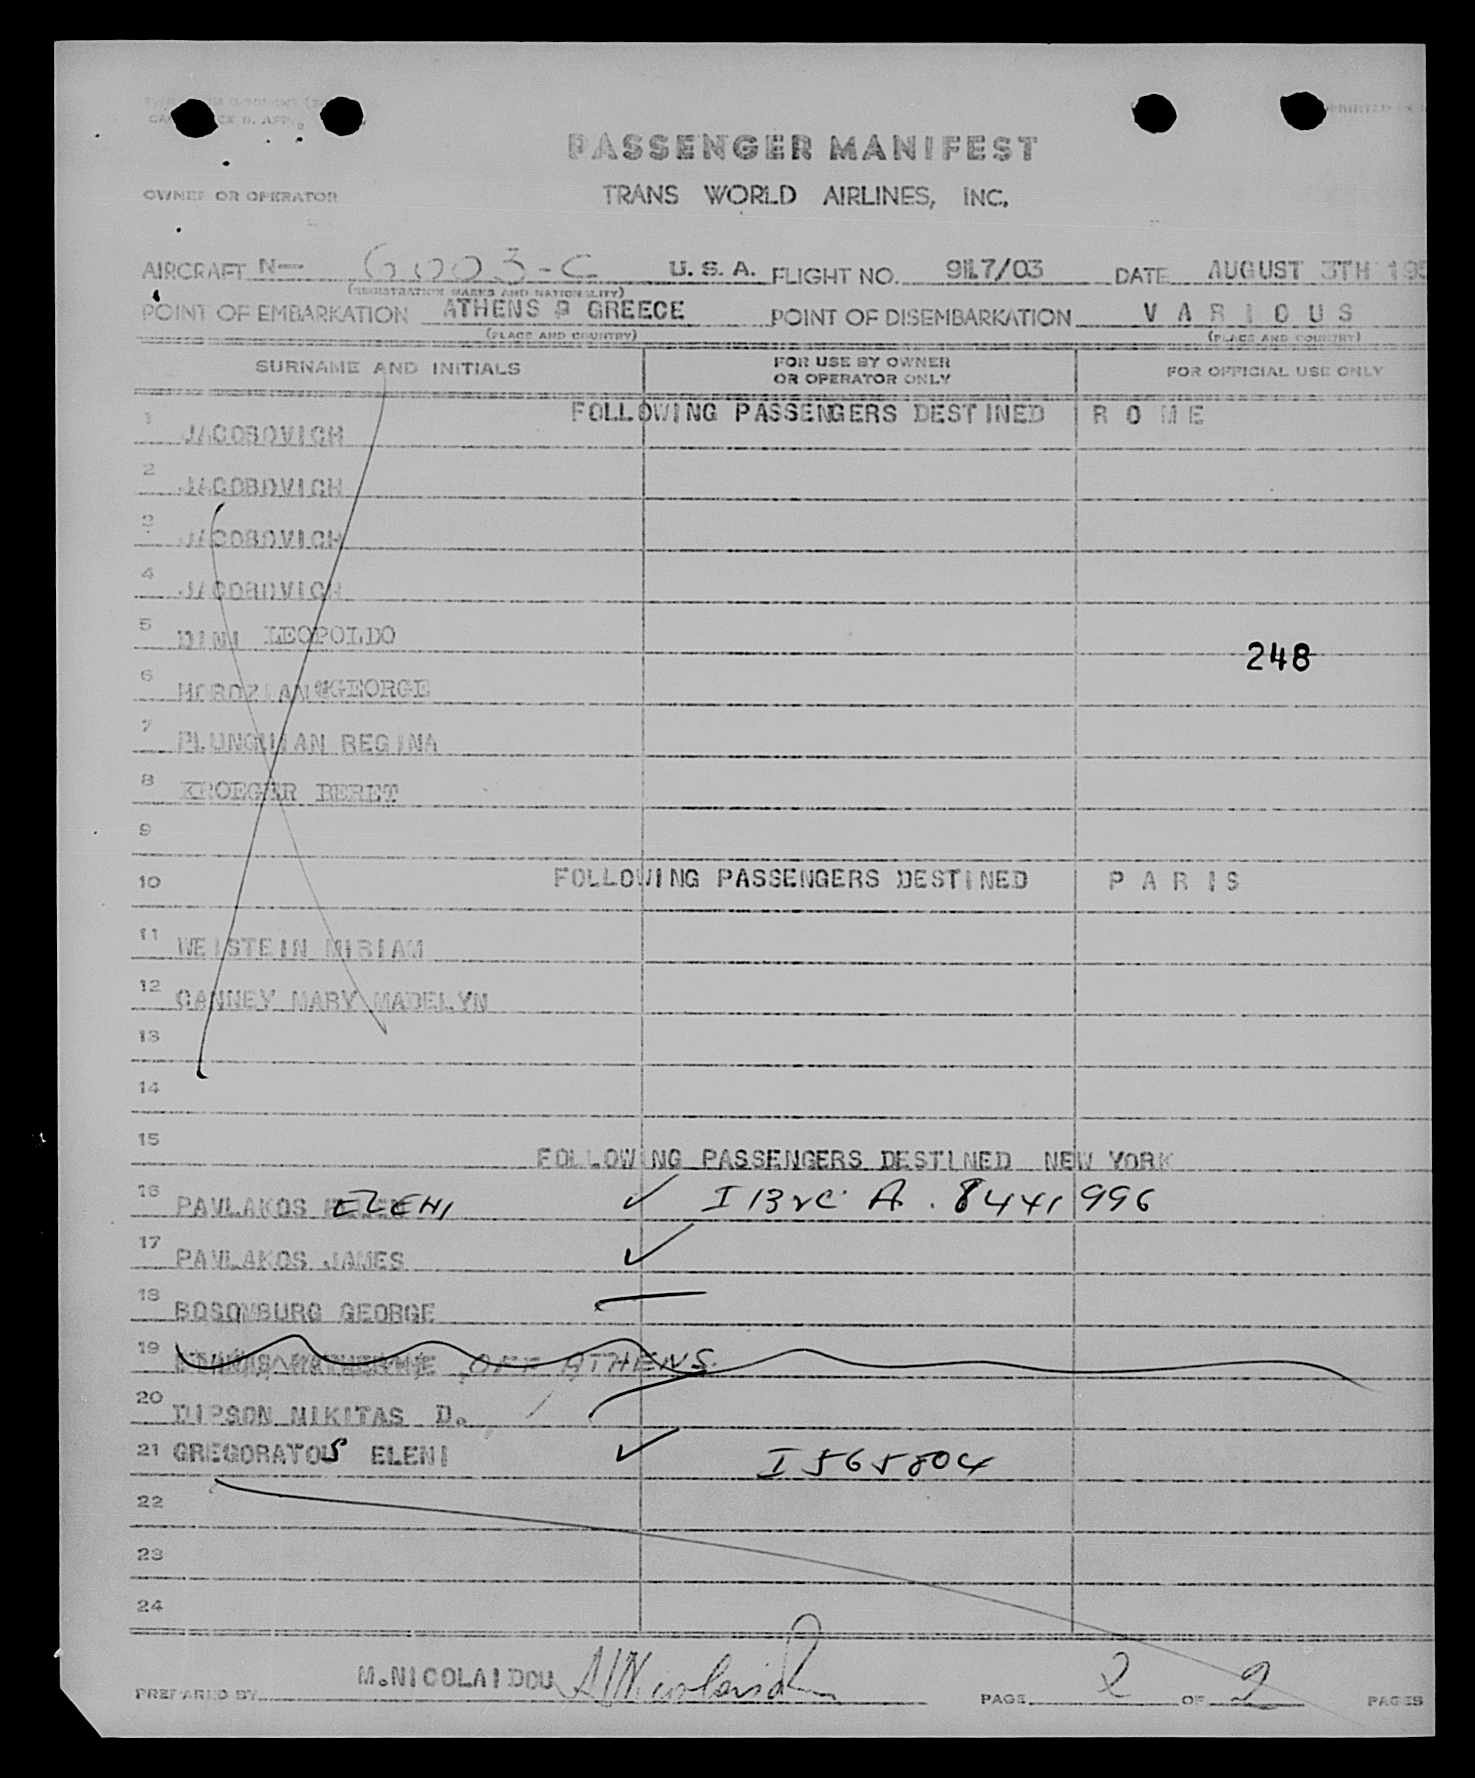 PASSENGER MANIFEST
OWNER OR OPERATOR TRANS WORLD AIRLINES, INC.
AIRCRAFT N— 6003-C U. S. A. FLIGHT NO. 917/03 DATE AUGUST 3TH 195
(REGISTRATION MARKS AND NATIONALITY)
POINT OF EMBARKATION ATHENS GREECE POINT OF DISEMBARKATION V A R I O U S
(PLACE AND COUNTRY) (PLACE AND COUNTRY)
SURNAME AND INITIALS FOR USE BY OWNER OR OPERATOR ONLY FOR OFFICIAL USE ONLY
FOLLOWING PASSENGERS DESTINED R O M E
1 JACOBOVICH
2 JACOBOVICH
3 JACOBOVICH
4 JACOBOVICH
5 DINI LEOPOLDO
248
6 GEORGE
7 REGINA
8 KROEGER BERET
9
10 FOLLOWING PASSENGERS DESTINED P A R I S
11 WEISTEIN MIRIAM
12 CANNEY MARY MADELYN
13
14
15 FOLLOWING PASSENGERS DESTINED NEW YORK
16 PAVLAKOS ELENI ✓ I 13 A. 8441996
17 PAVLAKOS JAMES ✓
18 BOSOMBURG GEORGE
19 OFF ATHENS
20 DIPSON NIKITAS D.
21 GREGORATOS ELENI ✓ I 565804
22
23
24
PREPARED BY M.NICOLAIDOU PAGE 2 OF 2 PAGES